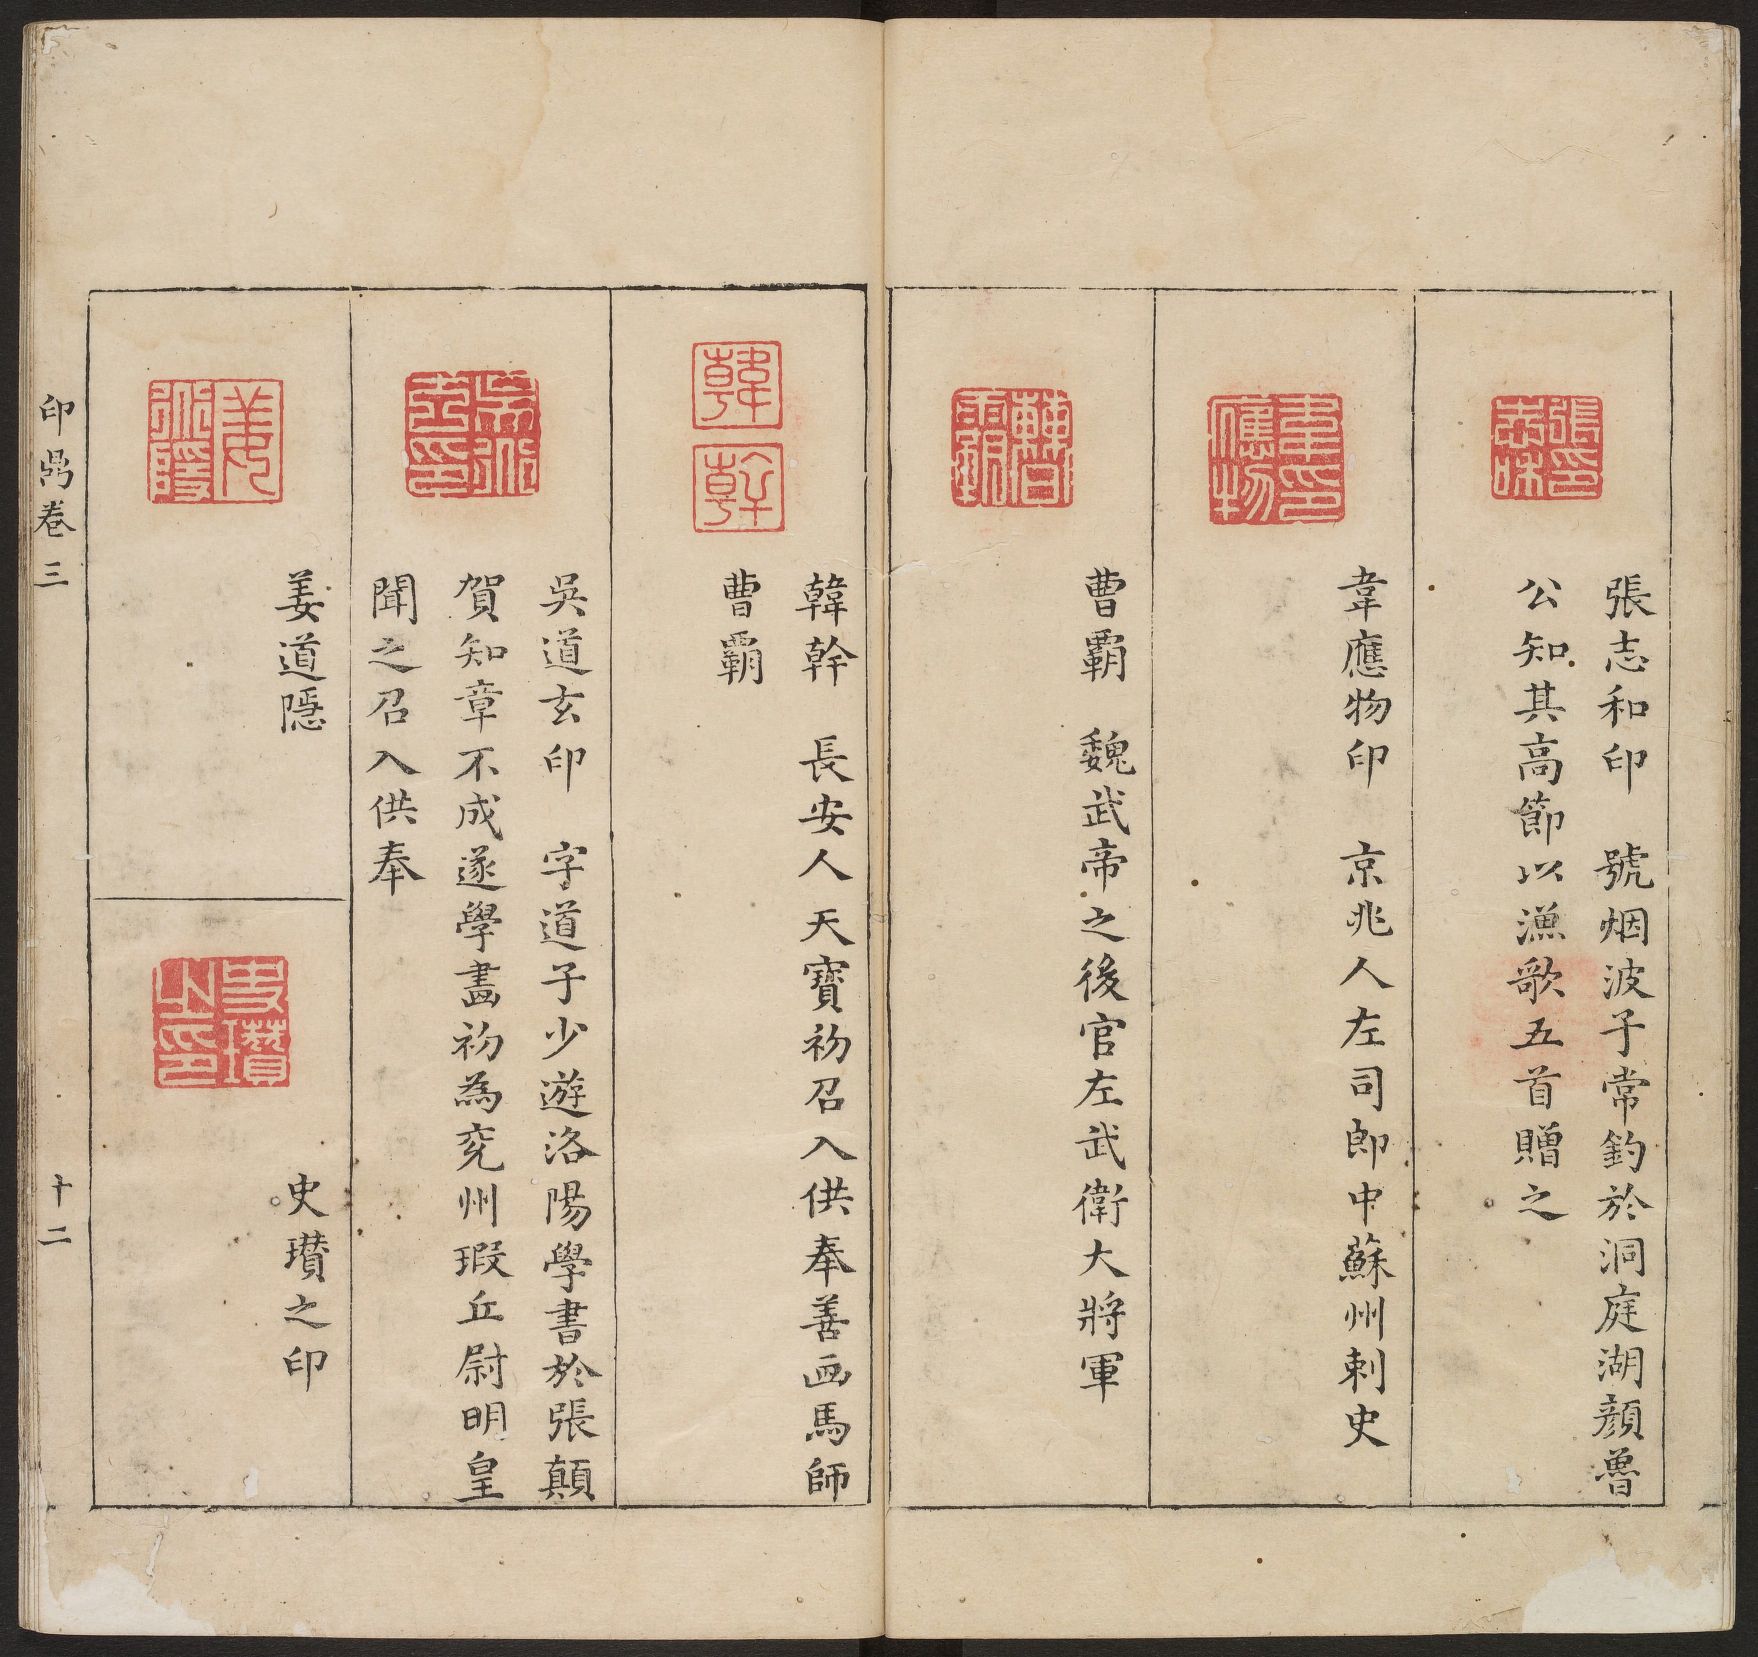 張志和印　號烟波子常釣於洞庭湖顏魯
公知其高節以漁歌五首贈之
韋應物印　京兆人左司郎中蘇州刺史
曹霸　魏武帝之後官左武衛大將軍
韓
幹
韓幹　長安人天寶初召入供奉善画馬師
曹霸
吳道玄印　字道子少遊洛陽學書於張顛
賀知章不成遂學畫初為兖州瑕丘尉明皇
聞之召入供奉
姜道隱
姜道隱
史瓚之印
史瓚之印
卷三
十二